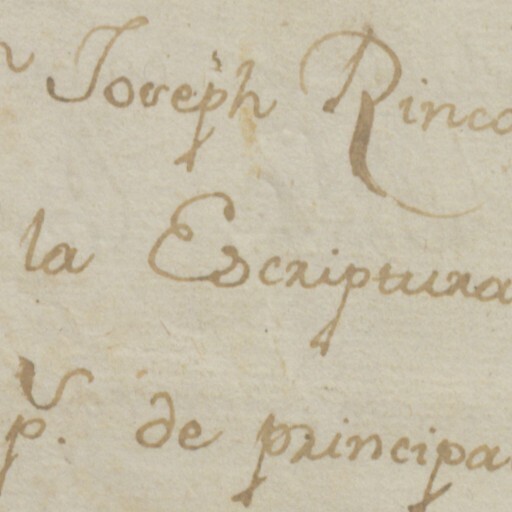 Joseph Rinco
la Escriptura
p.^s de principa